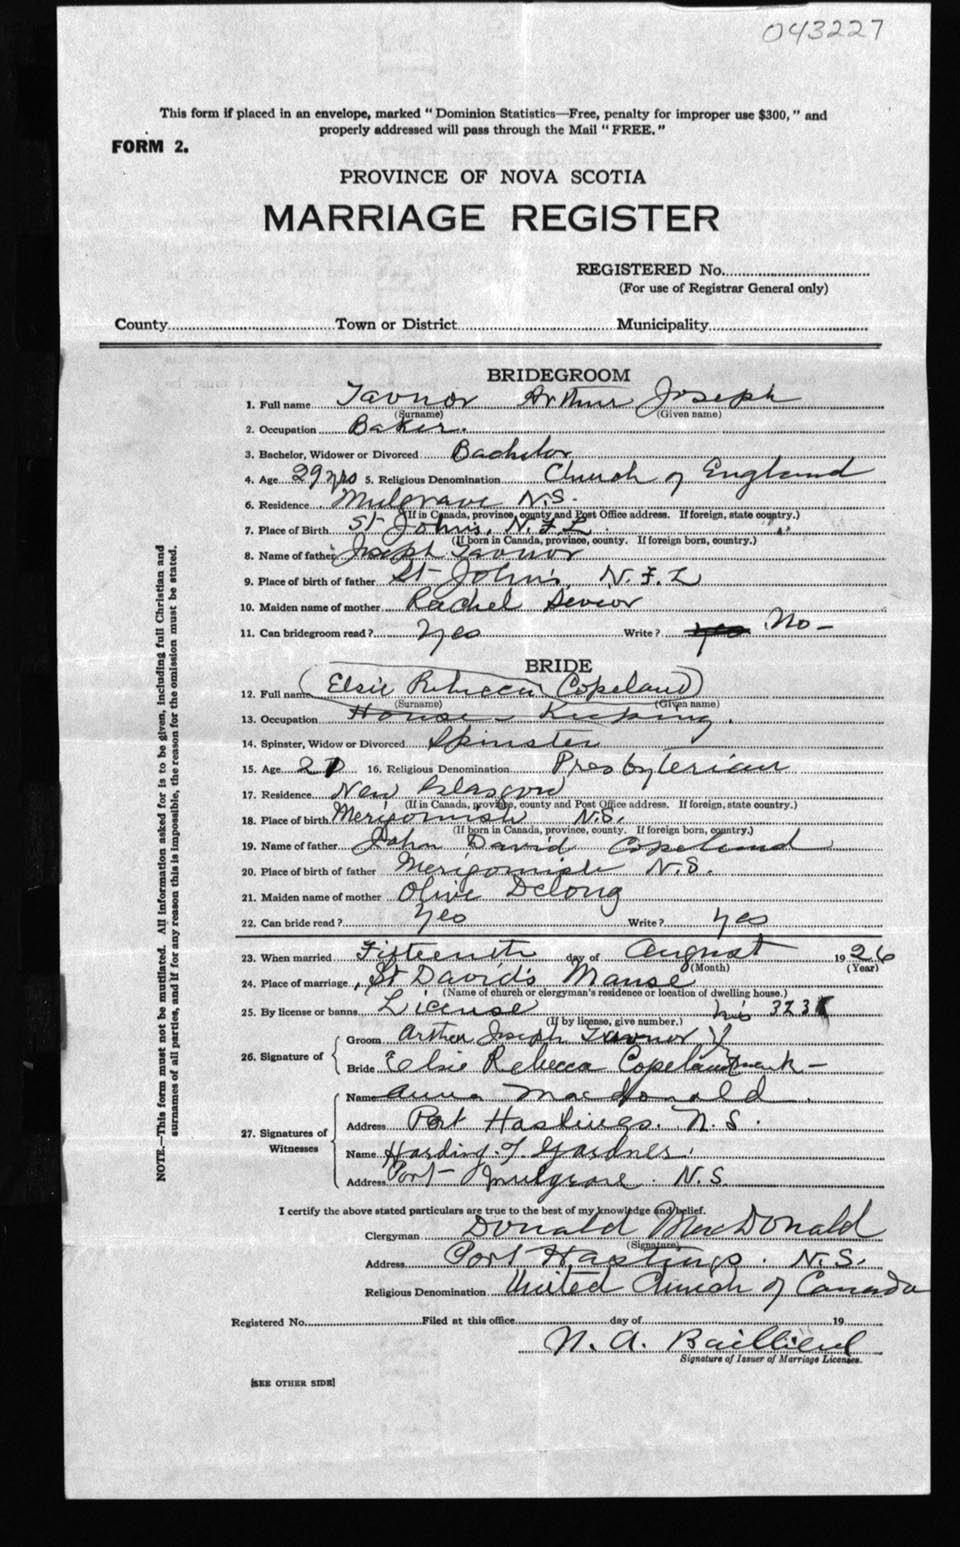 043227
This form if placed in an envelope, marked "Dominion Statistics—Free, penalty for improper use $300," and
properly addressed will pass through the Mail "FREE."
FORM 2.
PROVINCE OF NOVA SCOTIA
MARRIAGE REGISTER
REGISTERED No.
(For use of Registrar General only)
County Town or District Municipality
BRIDEGROOM
1. Full name Tavnor Arthur Joseph
(Surname) (Given name)
2. Occupation Baker.
3. Bachelor, Widower or Divorced Bachelor
4. Age 29 yrs 5. Religious Denomination Church of England
6. Residence Mulgrave N.S.
(If in Canada, province, county and Post Office address. If foreign, state country.)
7. Place of Birth St John's, N.F.L.
(If born in Canada, province, county. If foreign born, country.)
8. Name of father Joseph Tavnor
9. Place of birth of father St John's, N.F.L
10. Maiden name of mother Rachel
11. Can bridegroom read? yes Write? yes No –
BRIDE
12. Full name Elsie Rebecca Copeland
(Surname) (Given name)
13. Occupation House – Keeping.
14. Spinster, Widow or Divorced Spinster
15. Age 16. Religious Denomination Presbyterian
17. Residence New Glasgow
(If in Canada, province, county and Post Office address. If foreign, state country.)
18. Place of birth Merigomish N.S.
(If born in Canada, province, county. If foreign born, country.)
19. Name of father John David Copeland
20. Place of birth of father Merigomish N.S.
21. Maiden name of mother Olive Delong
22. Can bride read? yes Write? yes
23. When married Fifteenth day of August 1926
(Month) (Year)
24. Place of marriage St David's Manse
(Name of church or clergyman's residence or location of dwelling house.)
25. By license or banns License his 323
(If by license, give number.)
26. Signature of
Groom Arthur Joseph Tavnor X
Bride Elsie Rebecca Copeland mark –
27. Signatures of Witnesses
Name Anna MacDonald
Address Port Hastings. N.S.
Name Harding. T. Gardner.
Address Port – Mulgrave. N.S.
I certify the above stated particulars are true to the best of my knowledge and belief.
Clergyman Donald MacDonald
(Signature)
Address Port Hastings. N.S.
Religious Denomination United Church of Canada
Registered No. Filed at this office day of 19
N. A.
Signature of Issuer of Marriage Licenses.
[SEE OTHER SIDE]
NOTE.—This form must not be mutilated. All information asked for is to be given, including full Christian and
surnames of all parties, and if for any reason this is impossible, the reason for the omission must be stated.